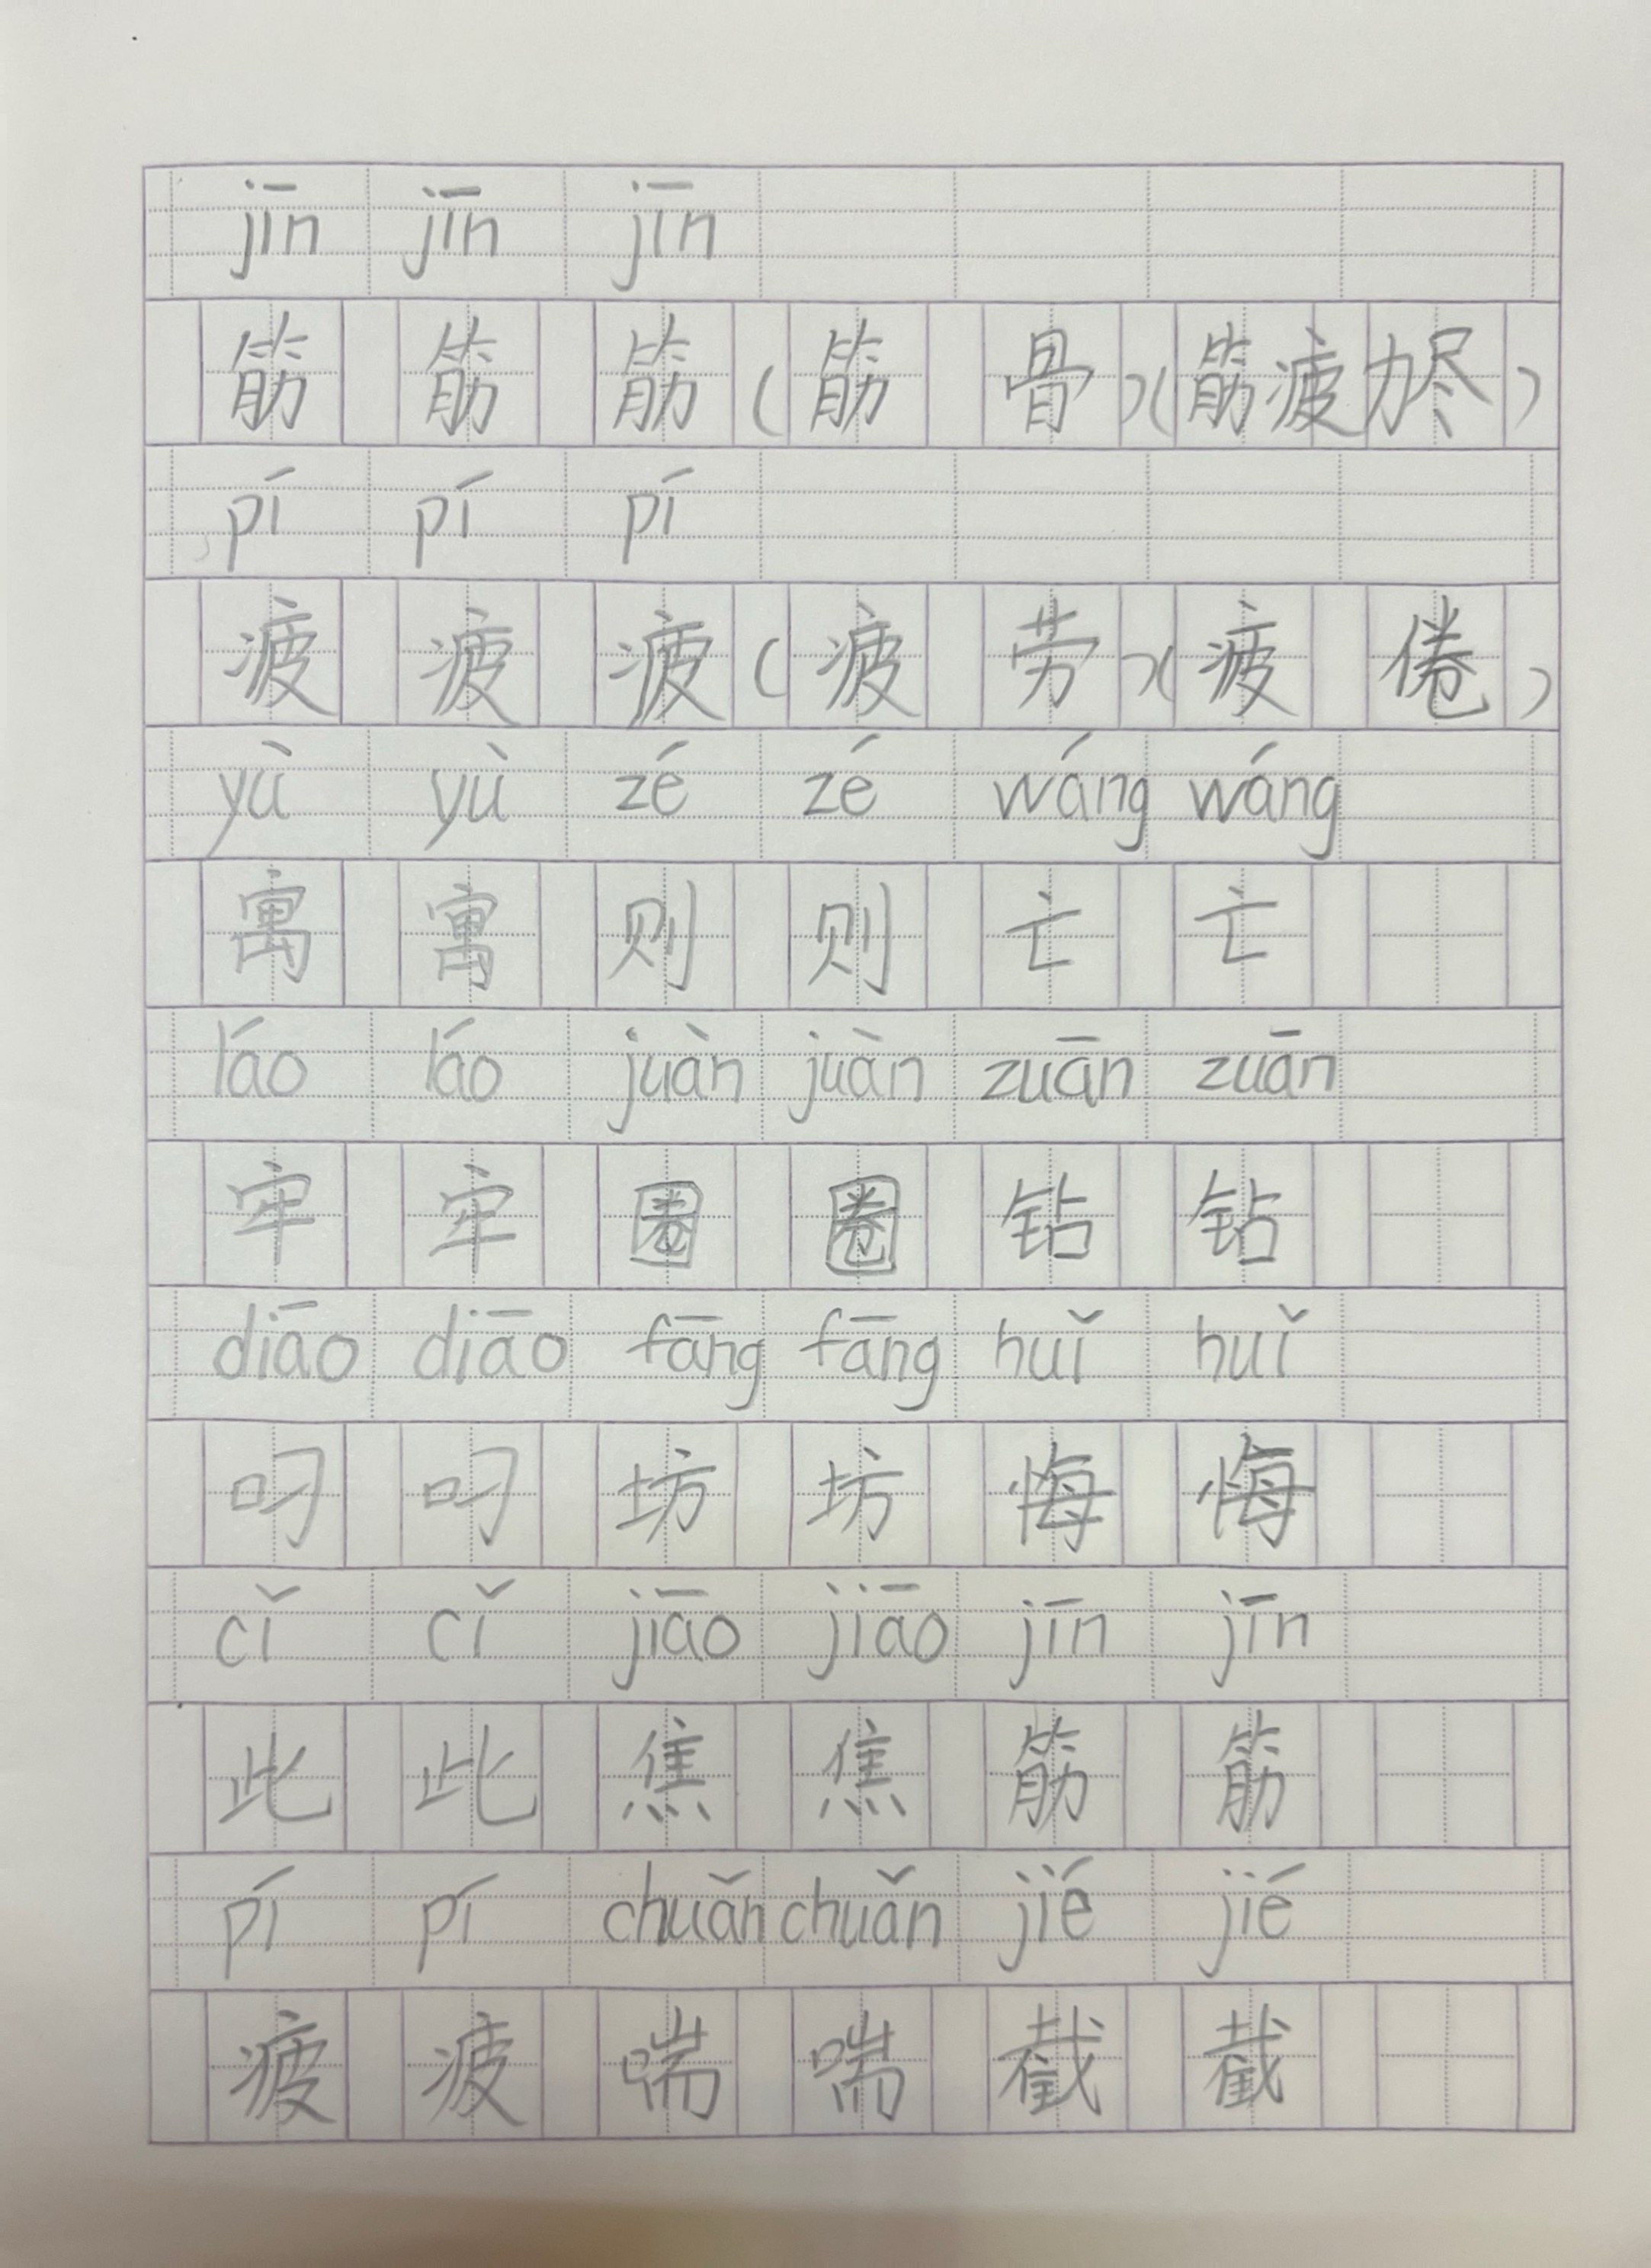 jīn jīn jīn
筋 筋 筋（筋 骨）（筋疲力尽）
pí pí pí
疲 疲 疲（疲 劳）（疲 倦）
yù yù zé zé wáng wáng
寓 寓 则 则 亡 亡
láo láo juàn juàn zuān zuān
牢 牢 圈 圈 钻 钻
diāo diāo fāng fāng huǐ huǐ
叼 叼 坊 坊 悔 悔
cǐ cǐ jiāo jiāo jīn jīn
此 此 焦 焦 筋 筋
pí pí chuǎn chuǎn jié jié
疲 疲 喘 喘 截 截